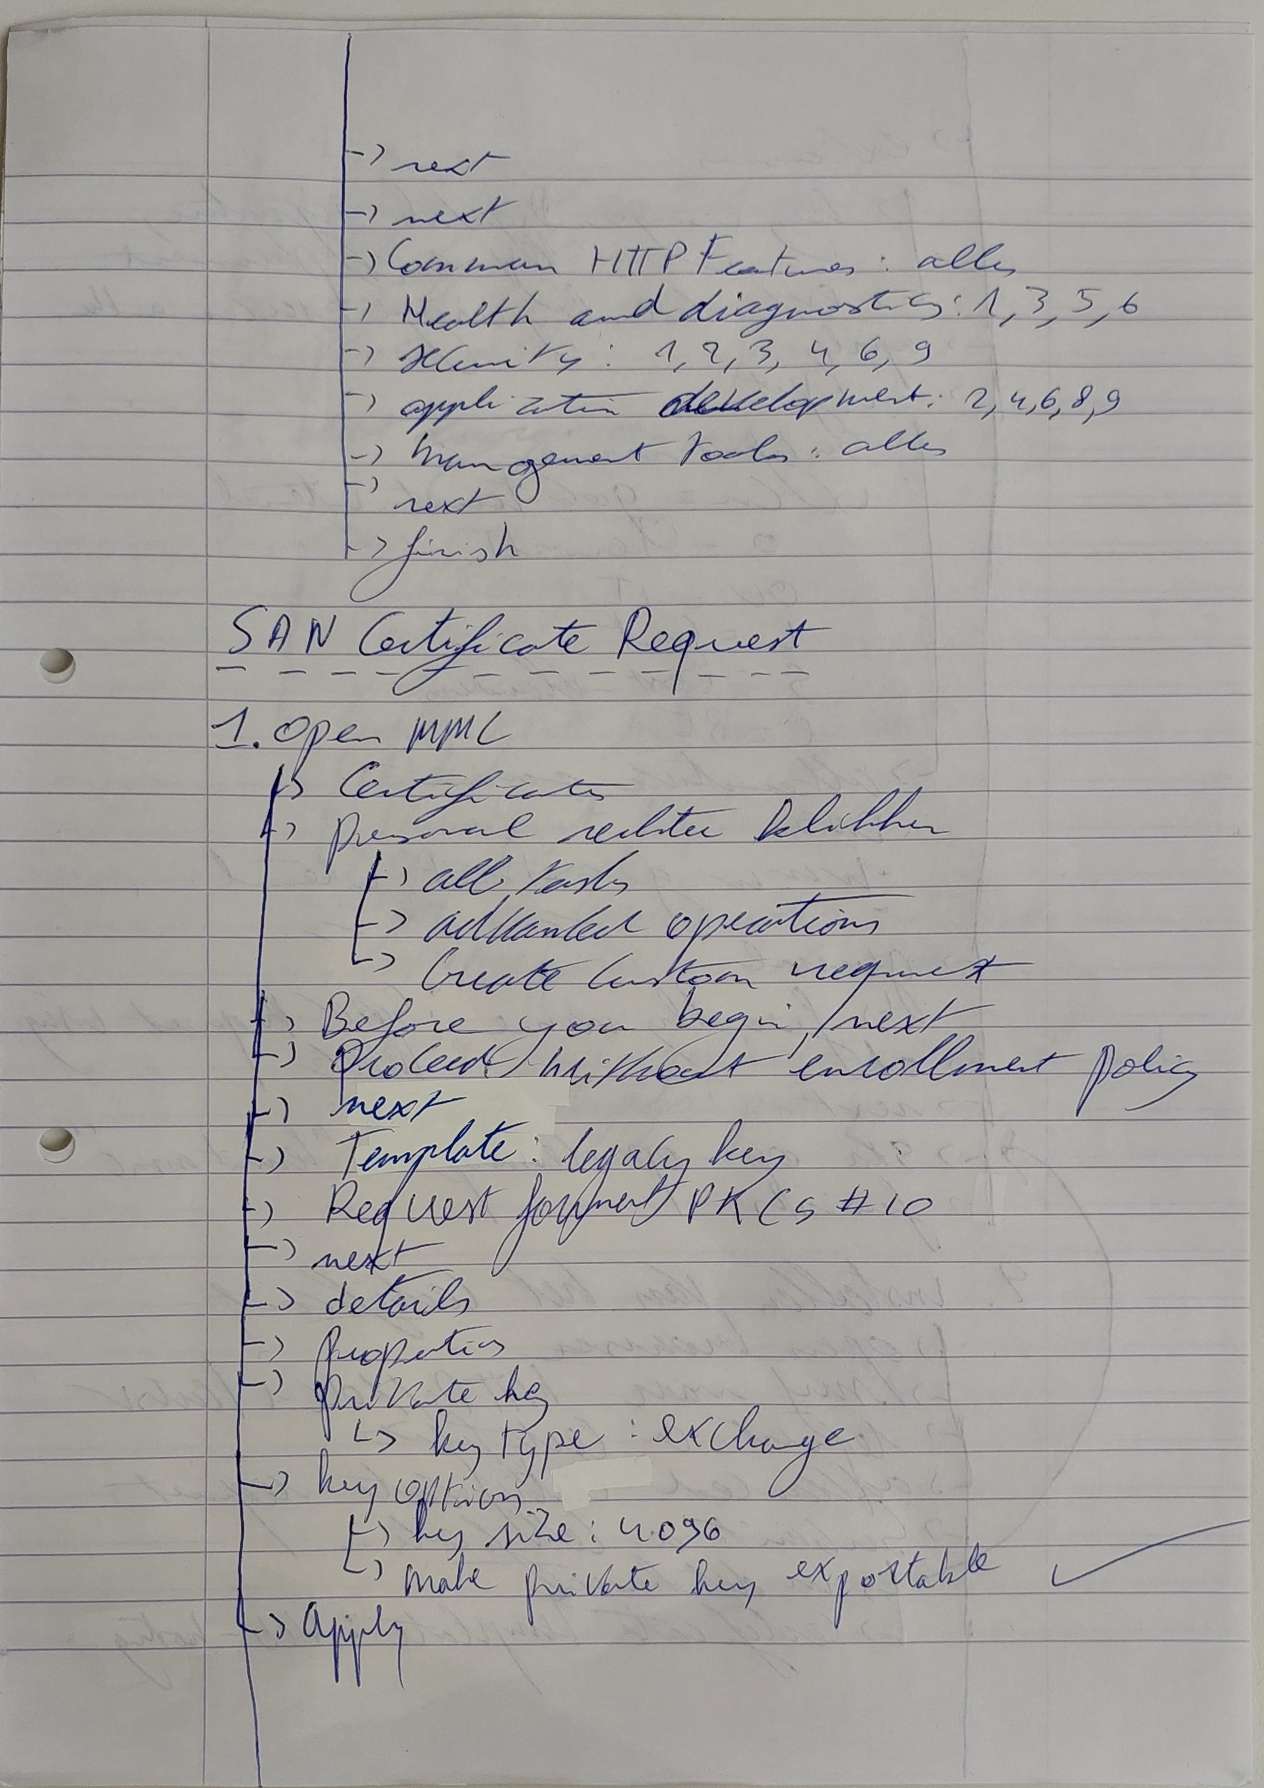 -> next
-> next
-> Common HTTP Features: alles
-> Health and diagnostics: 1, 3, 5, 6
-> security: 1, 2, 3, 4, 6, 9
-> application development: 2, 4, 6, 8, 9
-> Management tools: alles
-> next
-> finish
SAN Certificate Request
1. Open MMC
-> Certificates
-> personal rechter klikken
-> all tasks
-> advanced operations
-> Create custom request
-> Before you begin, next
-> Proceed without enrollment policy
-> next
-> Template: legacy key
-> Request format PKCS #10
-> next
-> details
-> properties
-> private key
-> key type: exchange
-> key options
-> key size: 4096
-> make private key exportable ✓
-> Apply